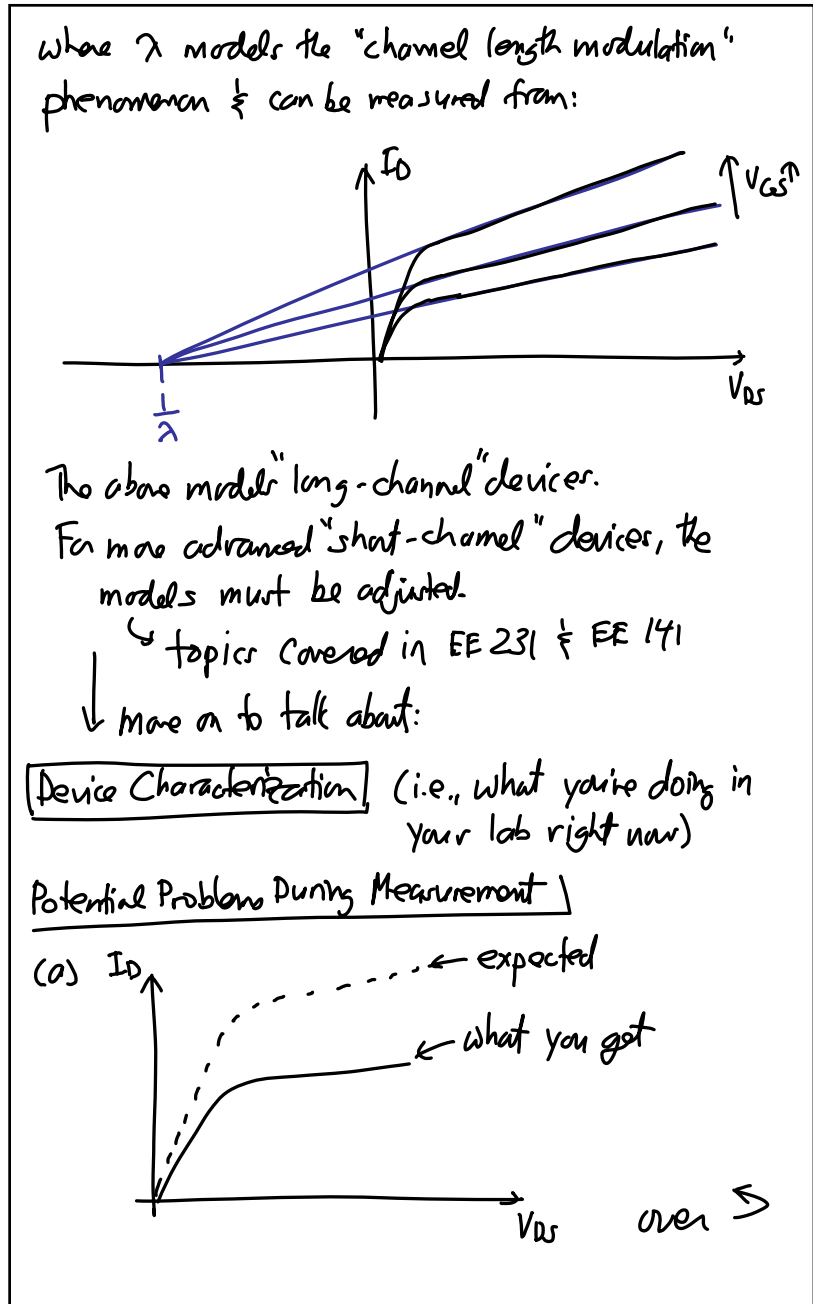 where λ models the "channel length modulation"
phenomenon & can be measured from:
I_D
V_GS↑
V_DS
1/λ
The above models "long-channel" devices.
For more advanced "short-channel" devices, the
models must be adjusted.
↳ topics covered in EE 231 & EE 141
↓ move on to talk about:
Device Characterization (i.e., what you're doing in
your lab right now)
Potential Problems During Measurement
(a) I_D
← expected
← what you get
V_DS
over